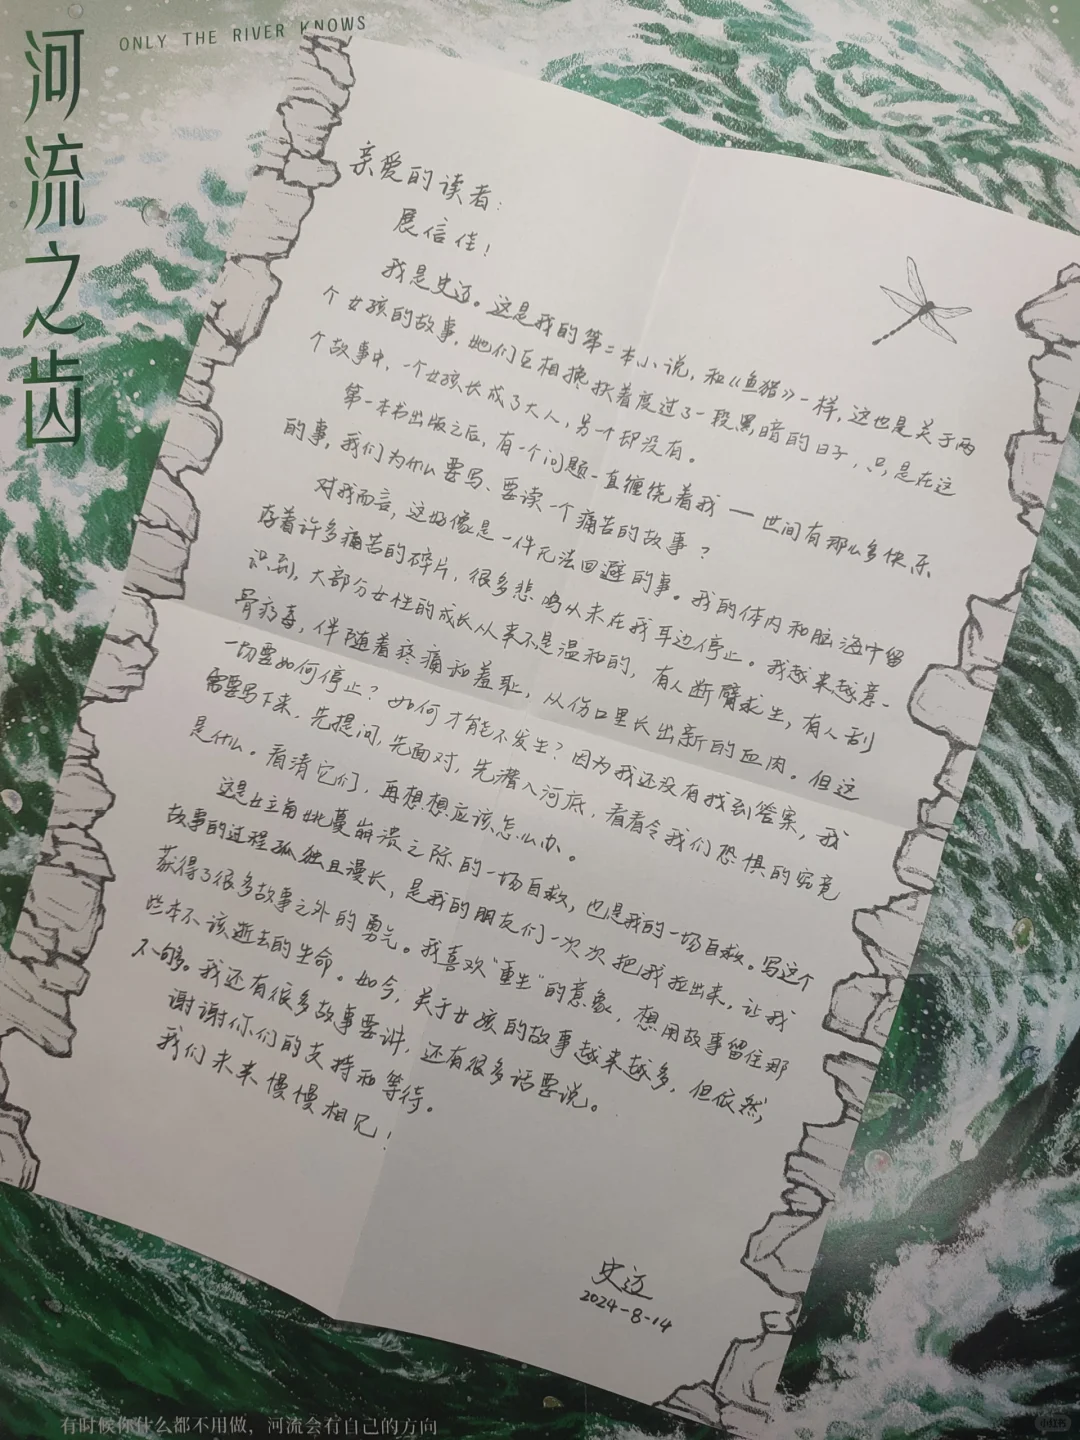 河流之齿
ONLY THE RIVER KNOWS
亲爱的读者：
展信佳！
我是史迈。这是我的第二本小说，和《鱼猎》一样，这也是关于两
个女孩的故事，她们互相搀扶着度过了一段黑暗的日子，只是在这
个故事中，一个女孩长成了大人，另一个却没有。
第一本书出版之后，有一个问题一直缠绕着我——世间有那么多快乐
的事，我们为什么要写、要读一个痛苦的故事？
对我而言，这好像是一件无法回避的事。我的体内和脑海中留
存着许多痛苦的碎片，很多悲鸣从未在我耳边停止。我越来越意
识到，大部分女性的成长从来不是温和的，有人断臂求生，有人刮
骨疗毒，伴随着疼痛和羞耻，从伤口里长出新的血肉。但这
一切要如何停止？如何才能不发生？因为我还没有找到答案，我
需要写下来，先提问，先面对，先潜入河底，看看令我们恐惧的究竟
是什么。看清它们，再想想应该怎么办。
这是女主角姚蔓崩溃之际的一场自救，也是我的一场自救。写这个
故事的过程孤独且漫长，是我的朋友们一次次把我拉出来，让我
获得了很多故事之外的勇气。我喜欢“重生”的意象，想用故事留住那
些本不该逝去的生命。如今，关于女孩的故事越来越多，但依然
不够。我还有很多故事要讲，还有很多话要说。
谢谢你们的支持和等待。
我们未来慢慢相见！
史迈
2024-8-14
有时候你什么都不用做，河流会有自己的方向
小红书